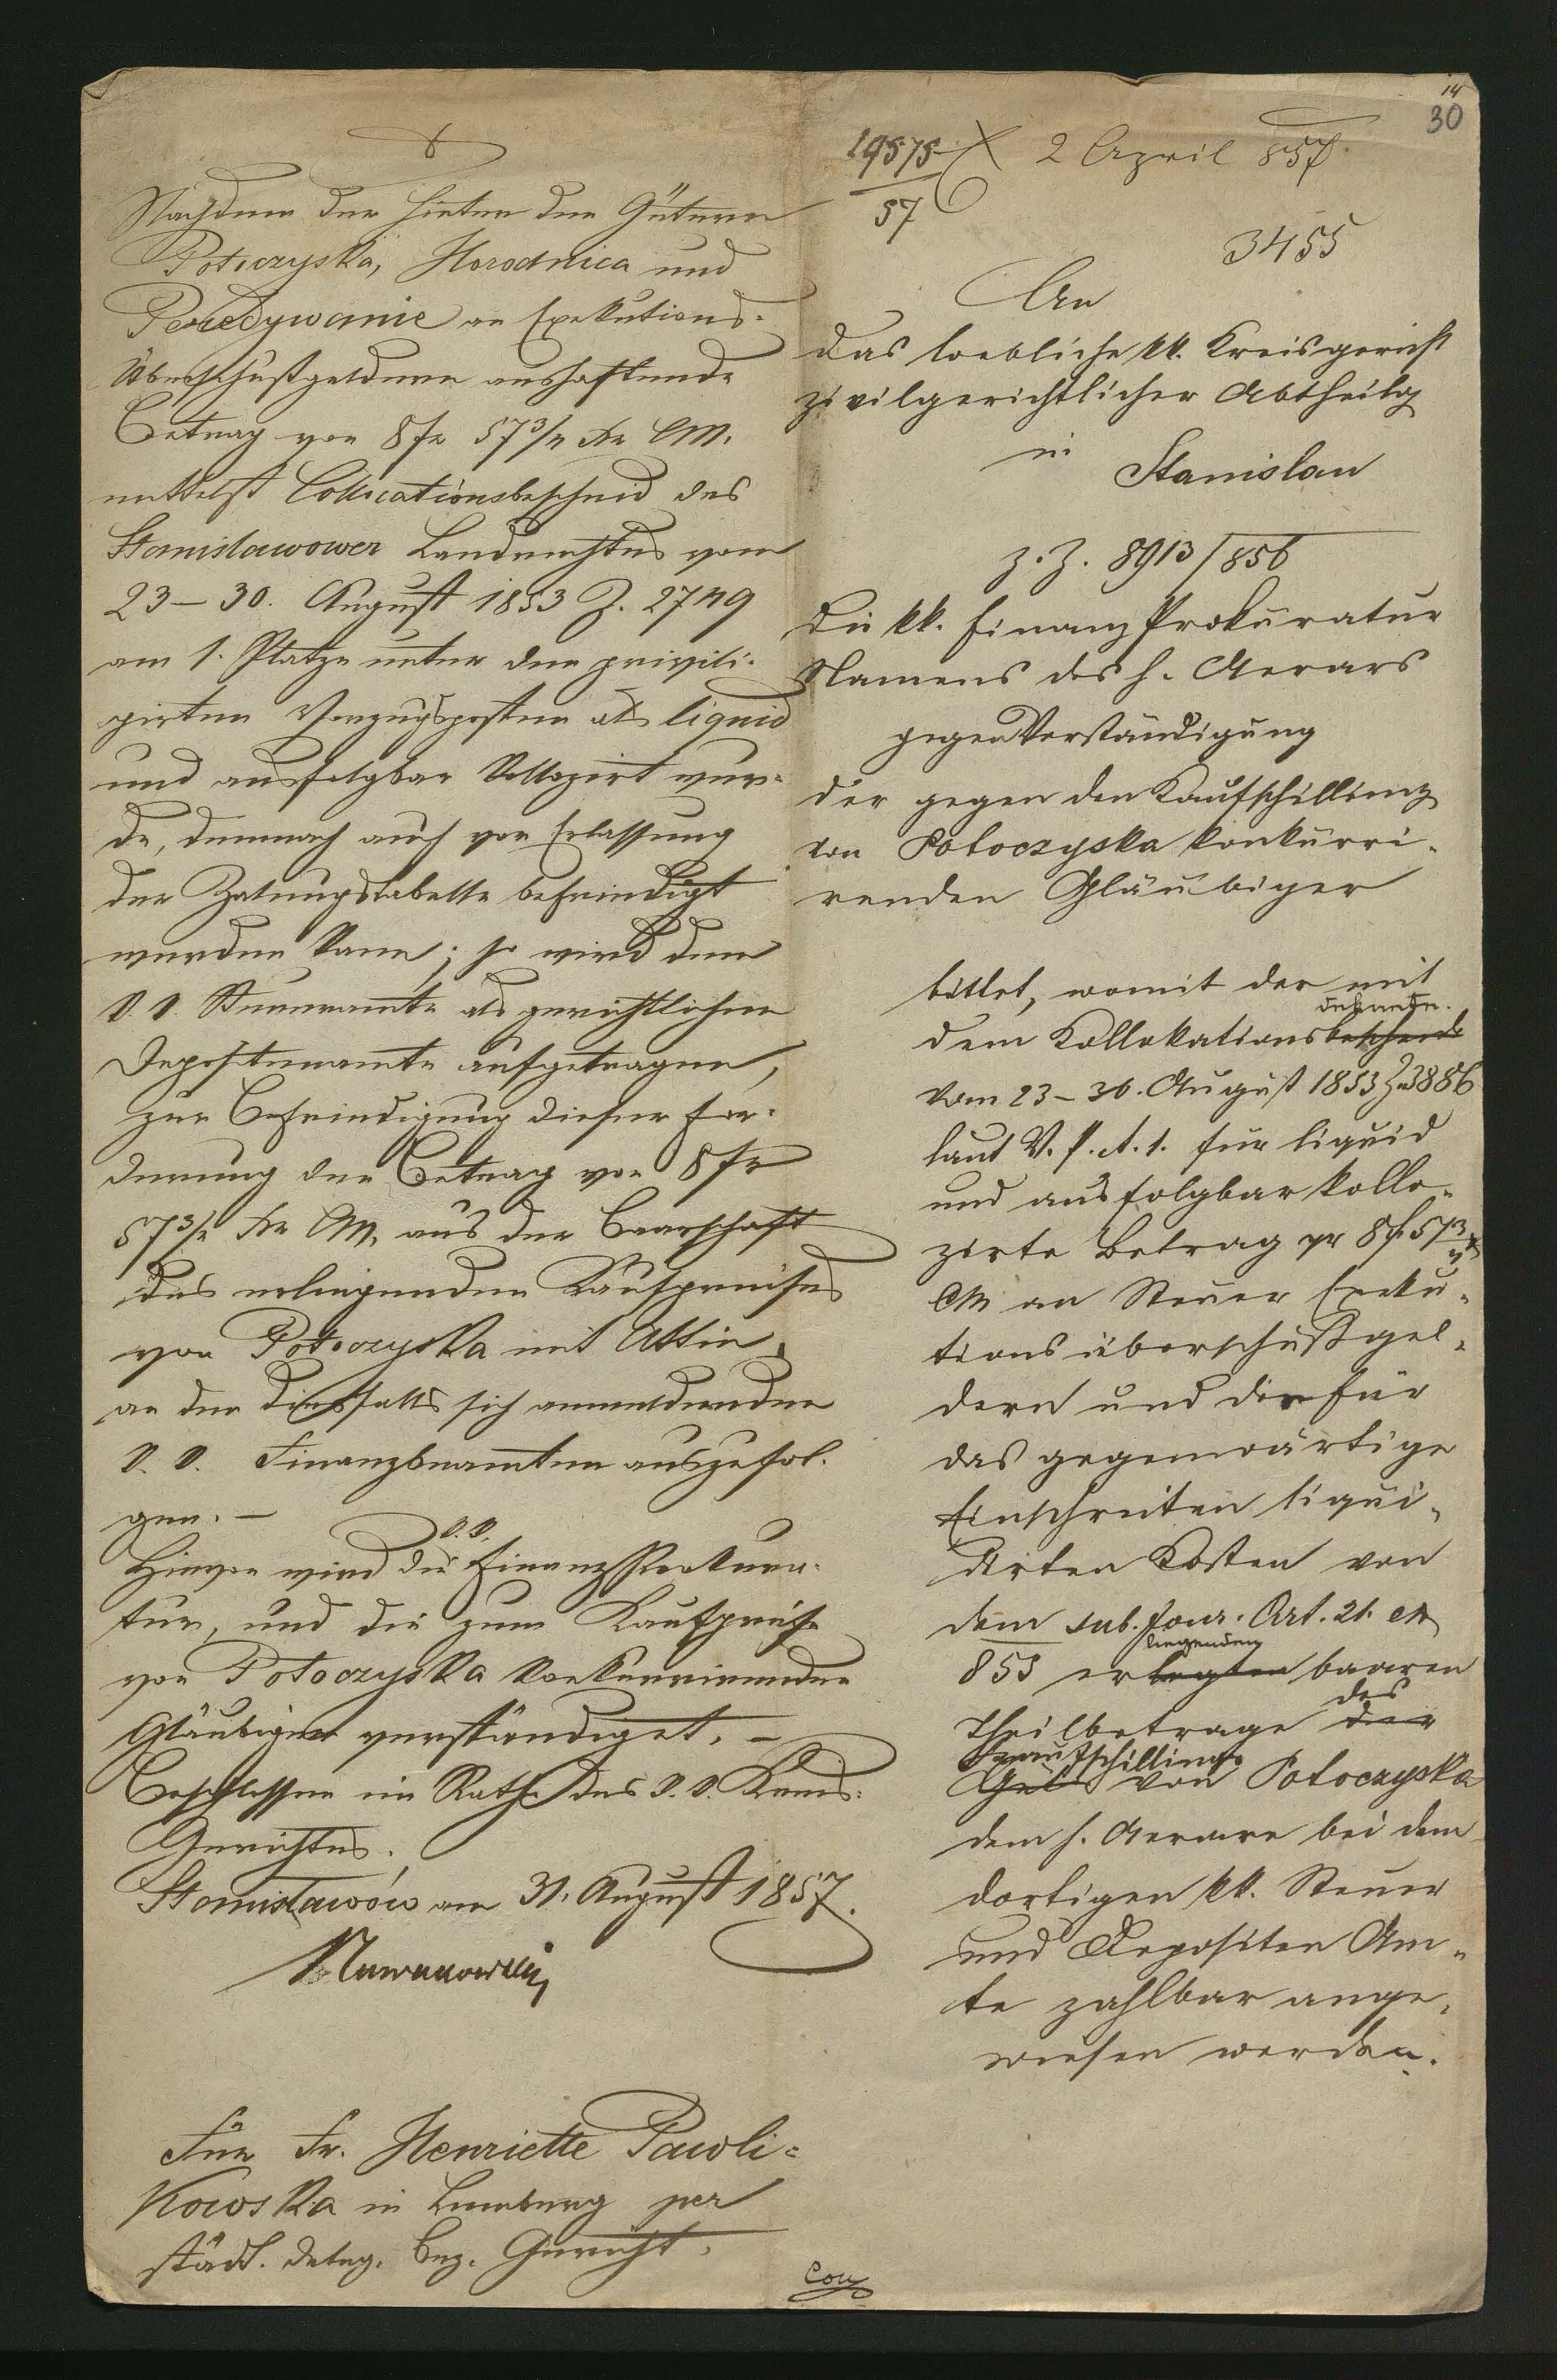 14
30
Nachdem der hinter den Gütern
Potoczyska, Horodnica und
Peredywanie an Exekutions-
überschußgeldern aushaftende
Betrag von 8 fr 57 3/4 xr CM.
mittelst Collocationsbescheid des
Stanislawower Landrechtes vom
23–30. August 1853 Z. 2749
am 1. Platze unter den privile-
girten Vorzugsposten als liquid
und ausfolgbar kollozirt wur-
de, demnach auch vor Erlassung
der Zalungstabelle befriedigt
werden kann; so wird dem
k. k. Steueramte als gerichtlichen
Depositenamte aufgetragen,
zur Befriedigung dieser For-
derung den Betrag von 8 fr
57 3/4 xr CM. aus der Baarschaft
des erliegenden Kaufpreises
von Potoczyska mit Attin.
an den diesfalls sich anmeldenden
k. k. Finanzbeamten auszufol-
gen. –
Hievon wird die k. k. Finanz Prokura-
tur, und die zum Kaufpreise
von Potoczyska konkurrirenden
Gläubiger verständiget. –
Beschlossen im Rathe des k. k. Kreis-
Gerichtes.
Stanisławów am 31. August 1857.
Für Fr. Henriette Pawli-
kowska in Lemberg per
städt. deleg. Bez. Gericht.
19575
57
2 April 857
3455
An
das loebliche kk. Kreisgericht
zivilgerichtlicher Abtheilg
in
Stanislau
Z. Z. 8913/856
Die kk. Finanz Prokuratur
Namens des h. Aerars
gegen Verständigung
der gegen den Kaufschilling
von Potoczyska konkurri-
renden Gläubiger
bittet, womit der mit
dem Kollokationsbescheide
vom 23–30. August 1853 Z 3886
laut V. P. A. 1. für liquid
und ausfolgbar kollo-
zirte Betrag pr 8 f 57 3/4 x
CM an Steuer Exeku-
tionsüberschußgel-
dern und die für
das gegenwärtige
Einschreiten liqui-
dirten Kosten von
dem sub. Jour. Art. 21. ex
liegenden
853 erlegten baaren
des
Theilbetrage der
Kaufschillings
Geld von Potoczyska
dem h. Aerare bei dem
dortigen kk. Steuer
und Depositen Am-
te zahlbar ange-
wiesen werden.